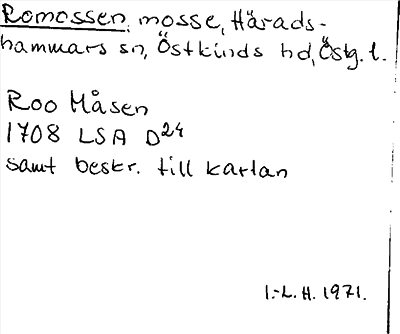 Romossen, mosse, Härads-
hammars sn, Östkinds hd, Östg. l.
Roo Måsen
1708 LSA D24
samt beskr. till kartan
I.-L. H. 1971.